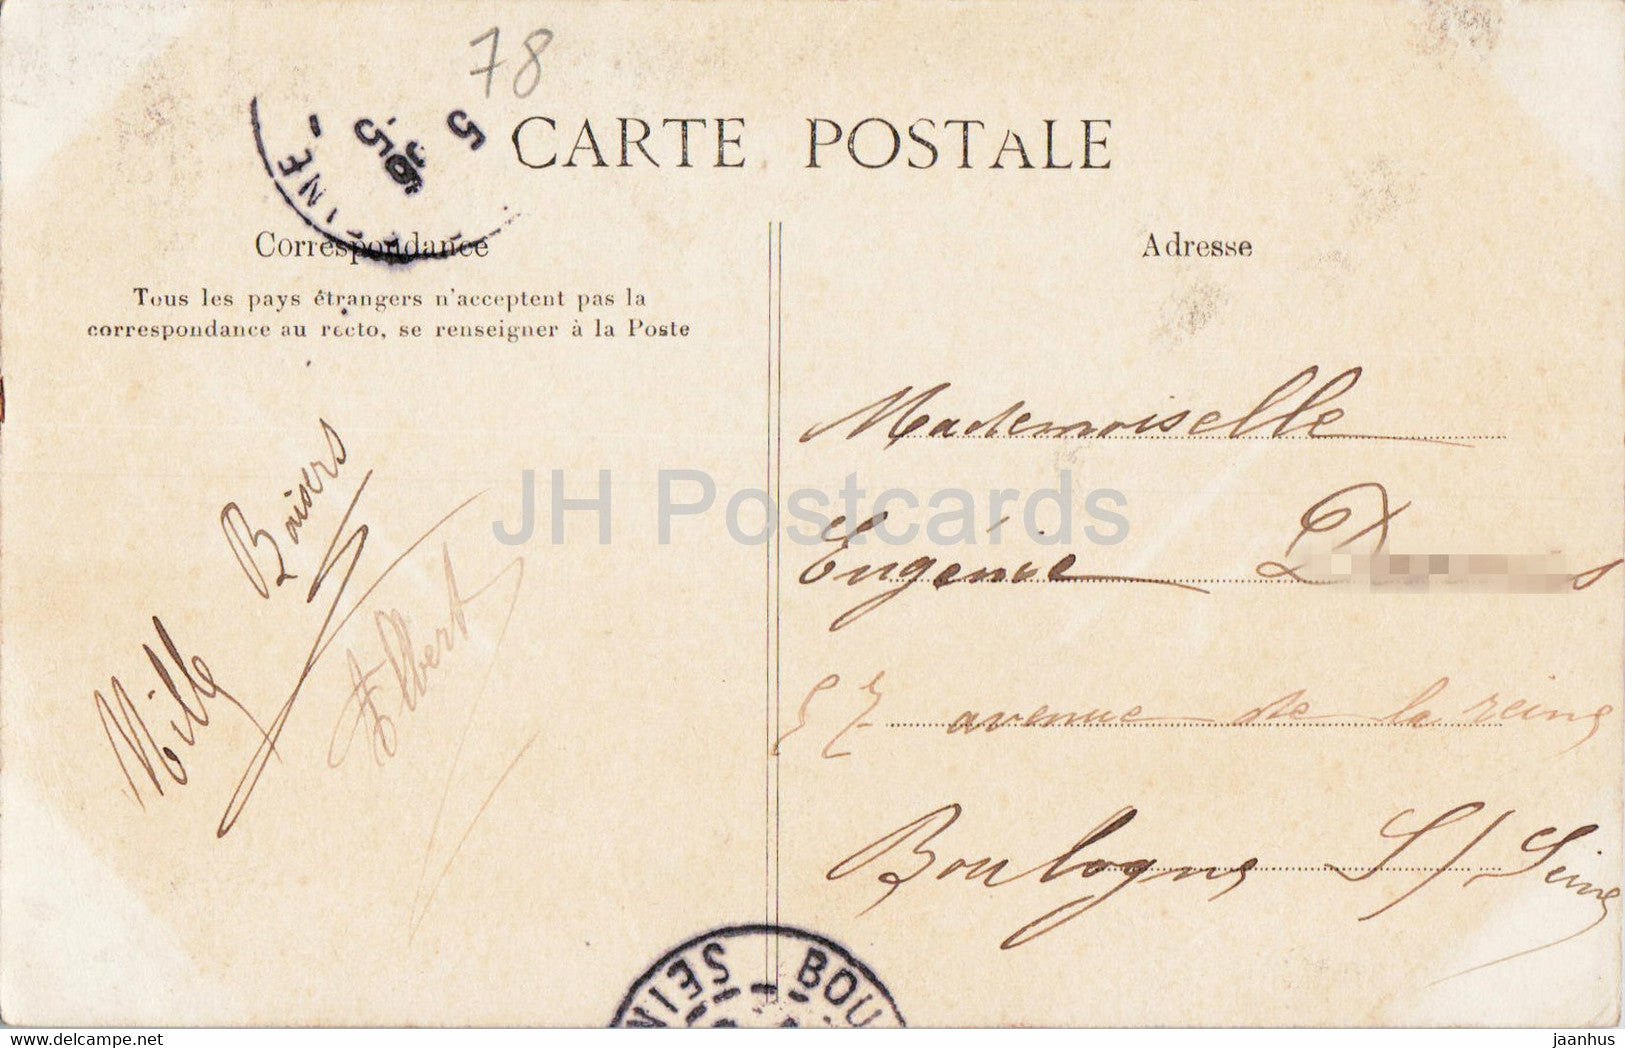 78
CARTE POSTALE
Correspondance
Tous les pays étrangers n'acceptent pas la
correspondance au recto, se renseigner à la Poste
Mille Baisers
Albert
Adresse
Mademoiselle
Eugénie
57 avenue de la reine
Boulogne S/ Seine
JH Postcards
INE
5
SEIN
BOU
jaanhus